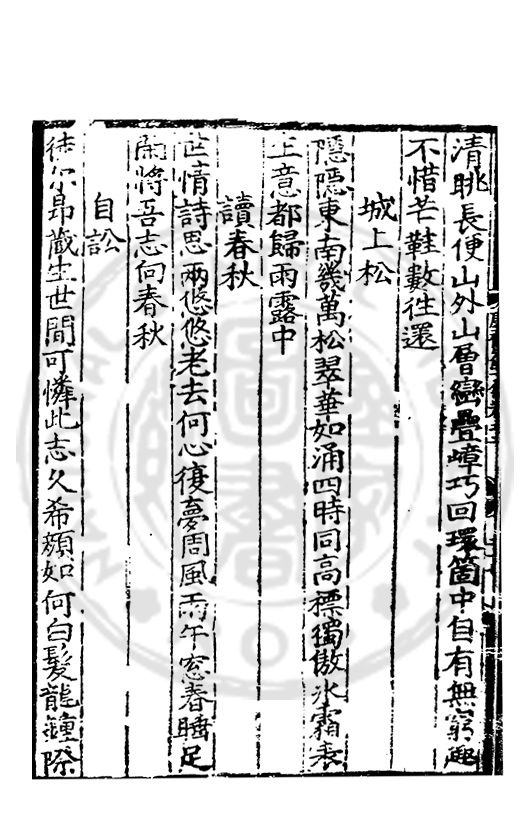 清眺長便山外山層巒疊嶂巧回環箇中自有無窮趣
不惜芒鞋數往還
城上松
隱隱東南幾萬松翠華如涌四時同高標獨傲冰霜表
生意都歸雨露中
讀春秋
世情詩思兩悠悠老去何心復夢周風雨午窓春睡足
閒將吾志向春秋
自訟
徒尔昻藏生世間可憐此志久希顏如何白髮龍鍾際